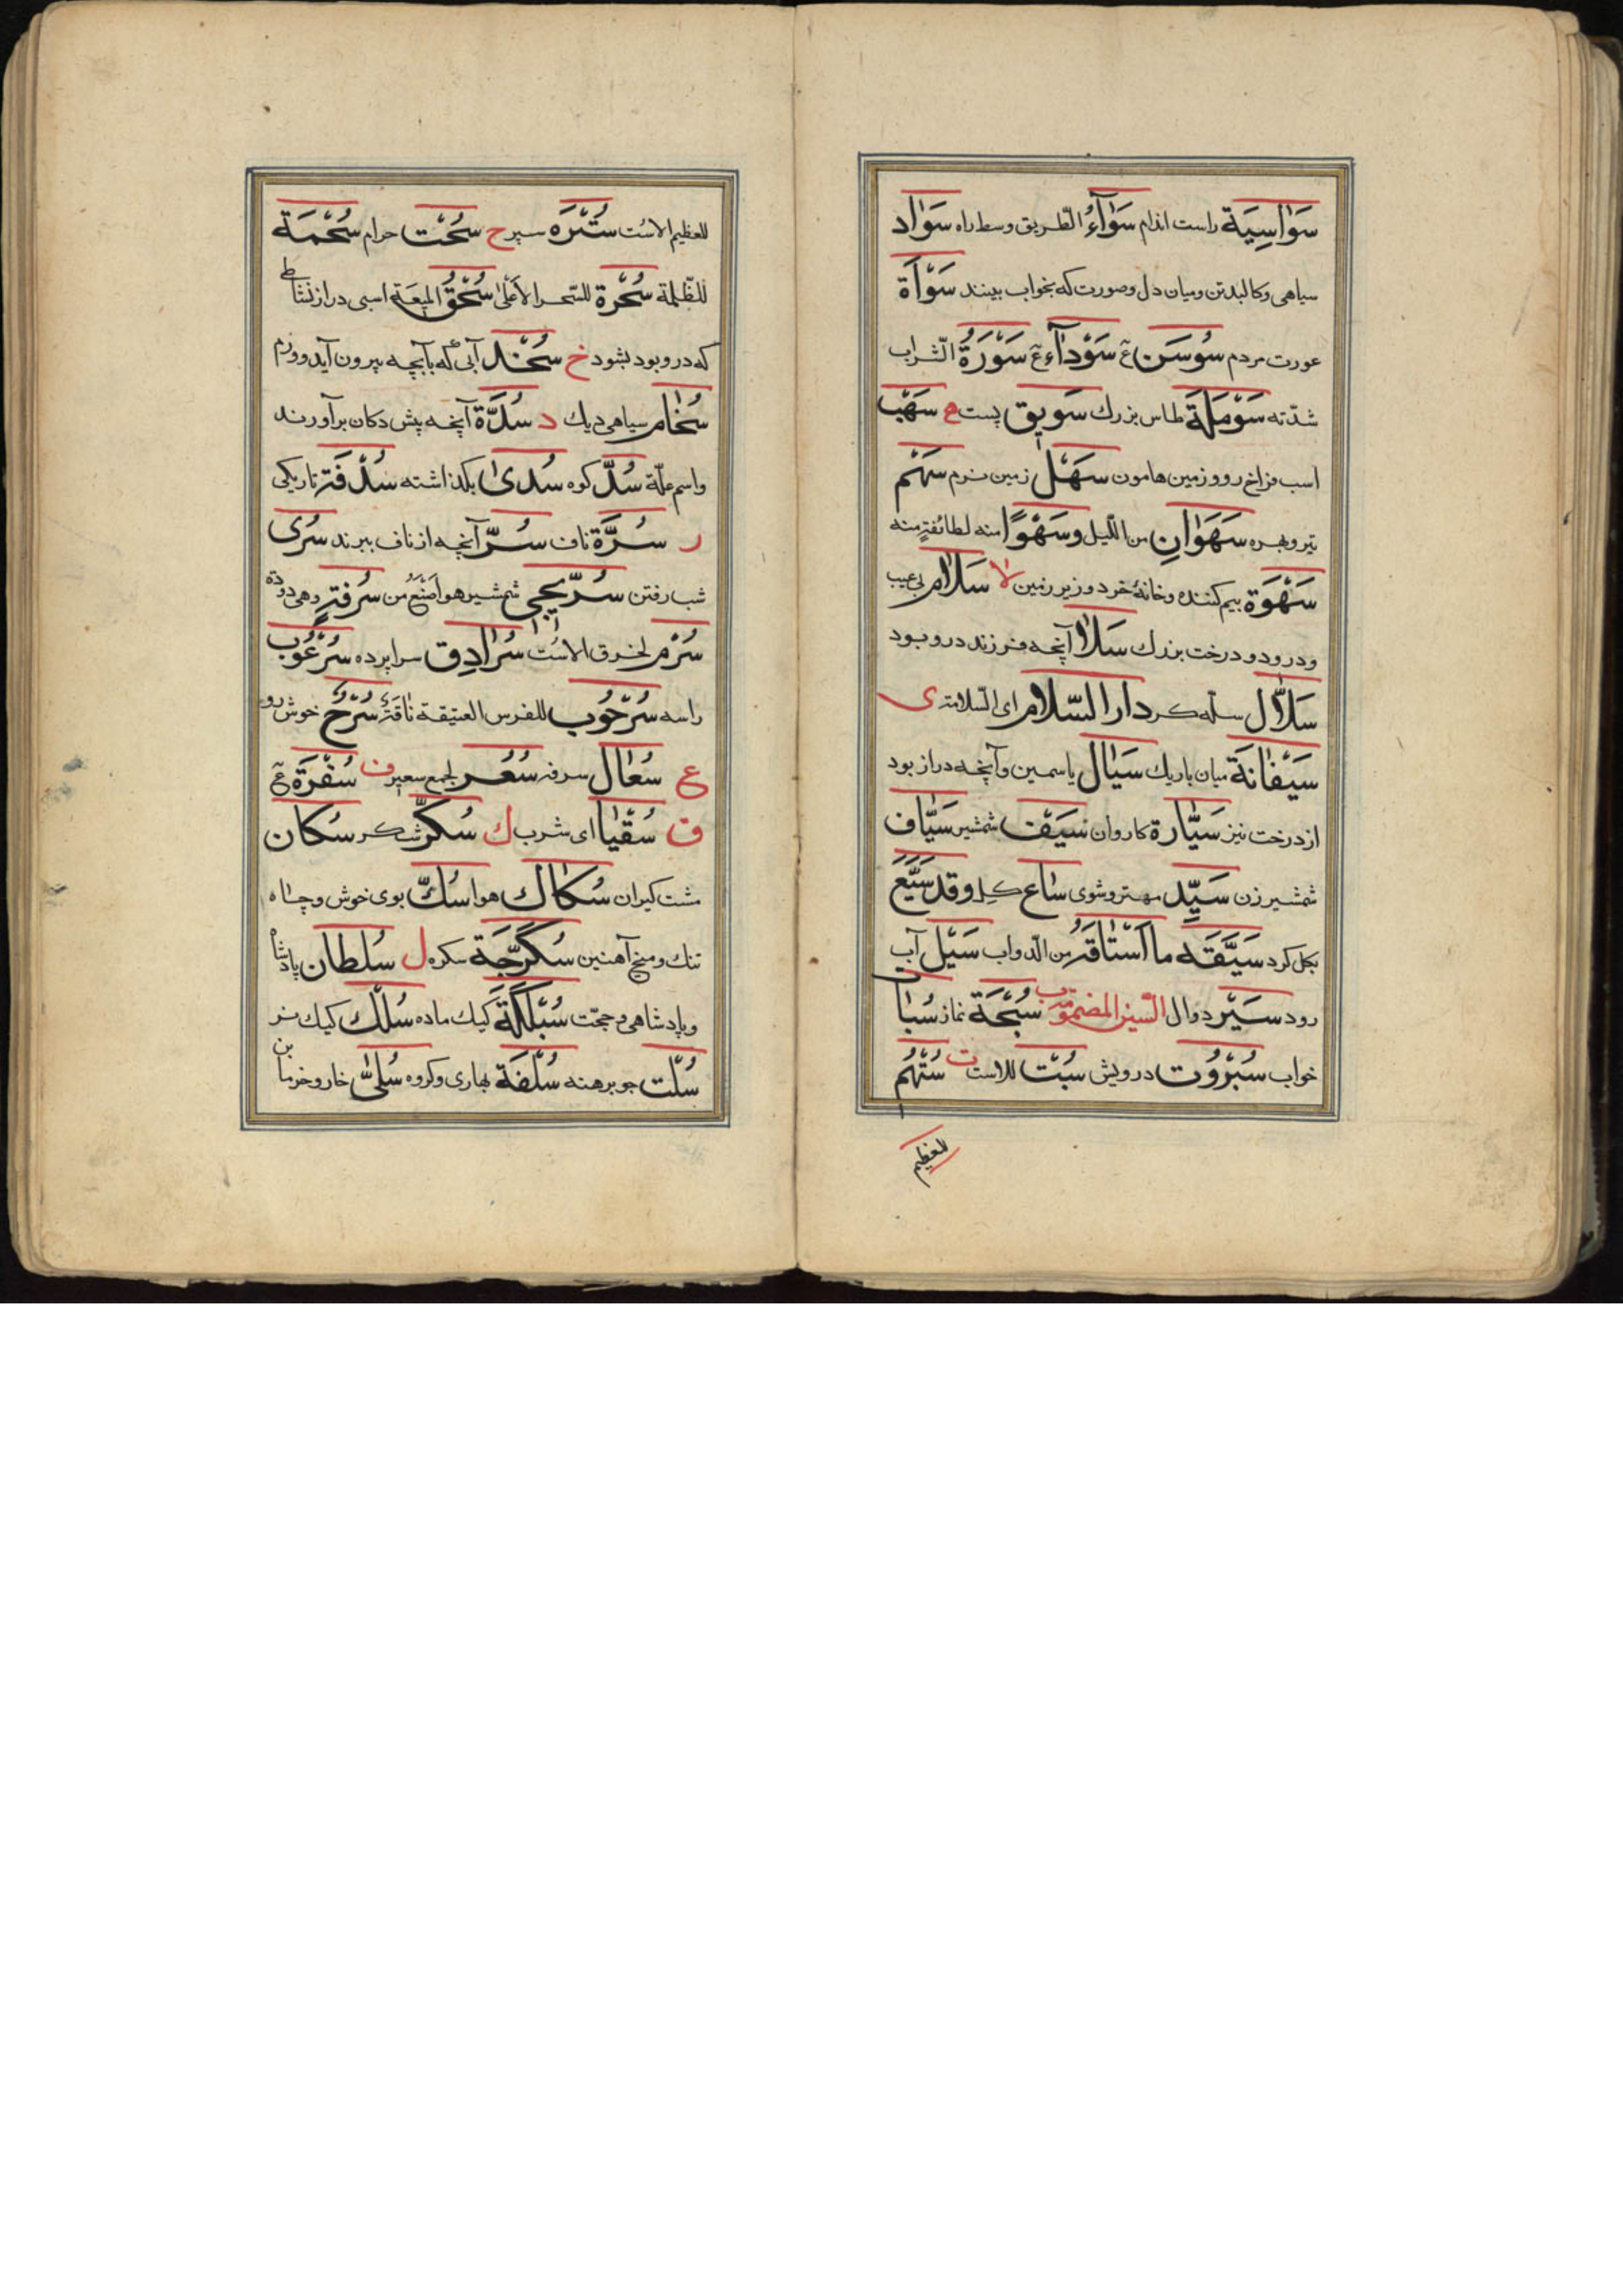 سَوٰاسِيَة راست اندام سَوٰآءُ الطّريق وسط راه سَوٰاد
سياهى وكالبد تن وميان دل وصورت كه بخواب بينند سَوْأَة
عورت مردم سُوسَن عَ سَوْدآء عَ سَوْرَةُ الشّراب
شدّته سَوْمَلَة طاس بزرك سَويق پست ه سَهْب
اسب فراخ رو وزمين هامون سَهْل زمين نرم سَهْم
تير وبهره سَهَوٰانِ من اللّيل وسَهْوًا منه لطائفةٍ منه
سَهْوَة بيم كننده وخانهٔ خرد وزير زمين لا سَلام بى عيب
ودرود ودرخت بزرك سَلا آنچه فرزند درو بود
سَلاّل سلّه كر دار السّلام اى السّلامة ى
سَيْفٰانَة ميان باريك سَيٰال ياسمين وآنچه دراز بود
از درخت نيز سَيّٰارة كاروان سَيْف شمشير سَيّٰاف
شمشير زن سَيِّد مهتر وشوى سٰاع كل وقد سَيَّعَ
بكل كرد سَيِّقَه ما اَسْتٰاقَهُ من الدّواب سَيْل آب
رود سَيْر دوال السّين المضمومة ب سُبْحَة نماز سُبٰات
خواب سُبْرُوت درويش سُبْت للاست ت سُتْهُم
للعظيم
للعظيم الاسْت سُتْرَه سپر ح سُحْت حرام سُحْمَة
للظّلمة سُحْرة للسّحر الأعْلىٰ سُحْقُ الميعَة اسبى دراز نشاط
كه درو بود بشود خ سُخْد آبى كه با بچه بيرون آيد وورم
سُخٰام سياهى ديك د سُدَّة آنچه پيش دكان برآورند
واسم علّة سُدّ كوه سُدىٰ بكذاشته سُدْفَة تاريكى
ر سُرَّة ناف سُرّ آنچه از ناف ببرند سُرى
شب رفتن سُرَّيْجى شمشير هو اَصْنَعُ من سُرْفَةٍ وهى دودة
سُرْم لخرق الاسْت سُرٰادِق سراپرده سُرْعُوب
راسه سُرْحُوب للفرس العتيقة نٰاقَةٌ سُرُحٌ خوش رو
ع سُعٰال سرفه سُعُر لجمع سعير ف سُفْرَة عَ
ق سُقْيٰا اى شرب ك سُكَّر شكر سُكان
مشت كيران سُكٰاك هوا سُكّ بوى خوش وچاه
تنك وميخ آهنين سُكُرَّجَة سكره ل سُلطان پادشاه
وپادشاهى وحجّت سُلَكَة كبك ماده سُلَك كبك نر
سُلْت جو برهنه سُلْفَة نهارى وكروه سُلّٰى خار وخرما بن